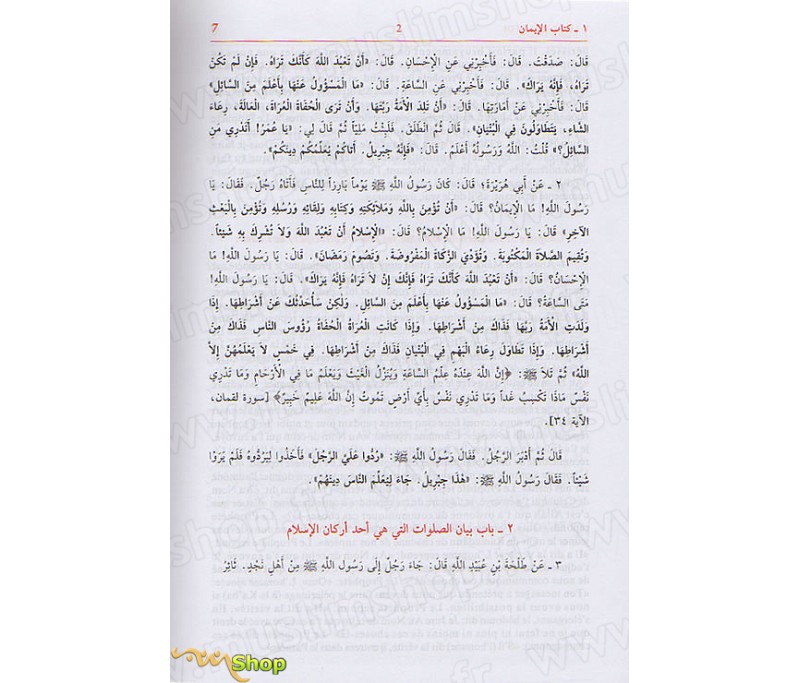 ١ ـ كتاب الإيمان 2 7
قَالَ: صَدَقْتَ. قَالَ: فَأَخْبِرْنِي عَنِ الْإِحْسَانِ. قَالَ: «أَنْ تَعْبُدَ اللَّهَ كَأَنَّكَ تَرَاهُ. فَإِنْ لَمْ تَكُنْ
تَرَاهُ، فَإِنَّهُ يَرَاكَ». قَالَ: فَأَخْبِرْنِي عَنِ السَّاعَةِ. قَالَ: «مَا الْمَسْؤُولُ عَنْهَا بِأَعْلَمَ مِنَ السَّائِلِ»
قَالَ: فَأَخْبِرْنِي عَنْ أَمَارَتِهَا. قَالَ: «أَنْ تَلِدَ الأَمَةُ رَبَّتَهَا. وَأَنْ تَرَى الْحُفَاةَ الْعُرَاةَ، الْعَالَةَ، رِعَاءَ
الشَّاءِ، يَتَطَاوَلُونَ فِي الْبُنْيَانِ». قَالَ ثُمَّ انْطَلَقَ. فَلَبِثْتُ مَلِيّاً ثُمَّ قَالَ لِي: «يَا عُمَرُ! أَتَدْرِي مَنِ
السَّائِلُ؟» قُلْتُ: اللَّهُ وَرَسُولُهُ أَعْلَمُ. قَالَ: «فَإِنَّهُ جِبْرِيلُ. أَتَاكُمْ يُعَلِّمُكُمْ دِينَكُمْ».
٢ ـ عَنْ أَبِي هُرَيْرَةَ؛ قَالَ: كَانَ رَسُولُ اللَّهِ ﷺ يَوْماً بَارِزاً لِلنَّاسِ فَأَتَاهُ رَجُلٌ. فَقَالَ: يَا
رَسُولَ اللَّهِ! مَا الْإِيمَانُ؟ قَالَ: «أَنْ تُؤْمِنَ بِاللَّهِ وَمَلَائِكَتِهِ وَكِتَابِهِ وَلِقَائِهِ وَرُسُلِهِ وَتُؤْمِنَ بِالْبَعْثِ
الآخِرِ» قَالَ: يَا رَسُولَ اللَّهِ! مَا الْإِسْلَامُ؟ قَالَ: «الْإِسْلَامُ أَنْ تَعْبُدَ اللَّهَ وَلَا تُشْرِكَ بِهِ شَيْئاً.
وَتُقِيمَ الصَّلَاةَ الْمَكْتُوبَةَ. وَتُؤَدِّيَ الزَّكَاةَ الْمَفْرُوضَةَ. وَتَصُومَ رَمَضَانَ». قَالَ: يَا رَسُولَ اللَّهِ! مَا
الْإِحْسَانُ؟ قَالَ: «أَنْ تَعْبُدَ اللَّهَ كَأَنَّكَ تَرَاهُ فَإِنَّكَ إِنْ لَا تَرَاهُ فَإِنَّهُ يَرَاكَ». قَالَ: يَا رَسُولَ اللَّهِ!
مَتَى السَّاعَةُ؟ قَالَ: «مَا الْمَسْؤُولُ عَنْهَا بِأَعْلَمَ مِنَ السَّائِلِ. وَلَكِنْ سَأُحَدِّثُكَ عَنْ أَشْرَاطِهَا. إِذَا
وَلَدَتِ الْأَمَةُ رَبَّهَا فَذَاكَ مِنْ أَشْرَاطِهَا. وَإِذَا كَانَتِ الْعُرَاةُ الْحُفَاةُ رُؤُوسَ النَّاسِ فَذَاكَ مِنْ
أَشْرَاطِهَا. وَإِذَا تَطَاوَلَ رِعَاءُ الْبَهْمِ فِي الْبُنْيَانِ فَذَاكَ مِنْ أَشْرَاطِهَا. فِي خَمْسٍ لَا يَعْلَمُهُنَّ إِلَّا
اللَّهُ» ثُمَّ تَلَا ﷺ: ﴿إِنَّ اللَّهَ عِنْدَهُ عِلْمُ السَّاعَةِ وَيُنَزِّلُ الْغَيْثَ وَيَعْلَمُ مَا فِي الْأَرْحَامِ وَمَا تَدْرِي
نَفْسٌ مَاذَا تَكْسِبُ غَداً وَمَا تَدْرِي نَفْسٌ بِأَيِّ أَرْضٍ تَمُوتُ إِنَّ اللَّهَ عَلِيمٌ خَبِيرٌ﴾ [سورة لقمان،
الآية ٣٤].
قَالَ ثُمَّ أَدْبَرَ الرَّجُلُ. فَقَالَ رَسُولُ اللَّهِ ﷺ: «رُدُّوا عَلَيَّ الرَّجُلَ» فَأَخَذُوا لِيَرُدُّوهُ فَلَمْ يَرَوْا
شَيْئاً. فَقَالَ رَسُولُ اللَّهِ ﷺ: «هَذَا جِبْرِيلُ. جَاءَ لِيُعَلِّمَ النَّاسَ دِينَهُمْ».
٢ ـ باب بيان الصلوات التي هي أحد أركان الإسلام
٣ ـ عَنْ طَلْحَةَ بْنِ عُبَيْدِ اللَّهِ قَالَ: جَاءَ رَجُلٌ إِلَى رَسُولِ اللَّهِ ﷺ مِنْ أَهْلِ نَجْدٍ. ثَائِرُ
Shop